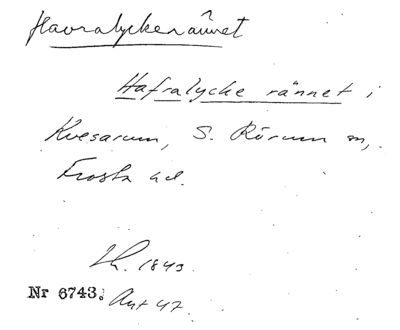 Havralyckerännet
Hafralycke rännet i
Kvesarum, S. Rörum sn,
Frosta hd.
Lh. 1843.
Nr 6743. Akt 47.